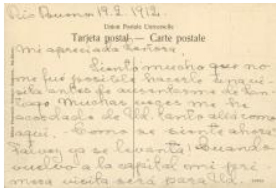 Rio Bueno 19.2.1912.
Union Postale Universelle
Tarjeta postal.— Carte postale
Mi apreciada Señora:
Siento mucho que no
me fué posible hacerle una vi-
sita antes de ausentarme de San-
tiago. Muchas veces me he
acordado de Ud. tanto allá como
aquí. Como se siente ahora
Tal vez ya se levanta! Cuando
vuelvo a la capital mi pri-
mera visita será para Ud.